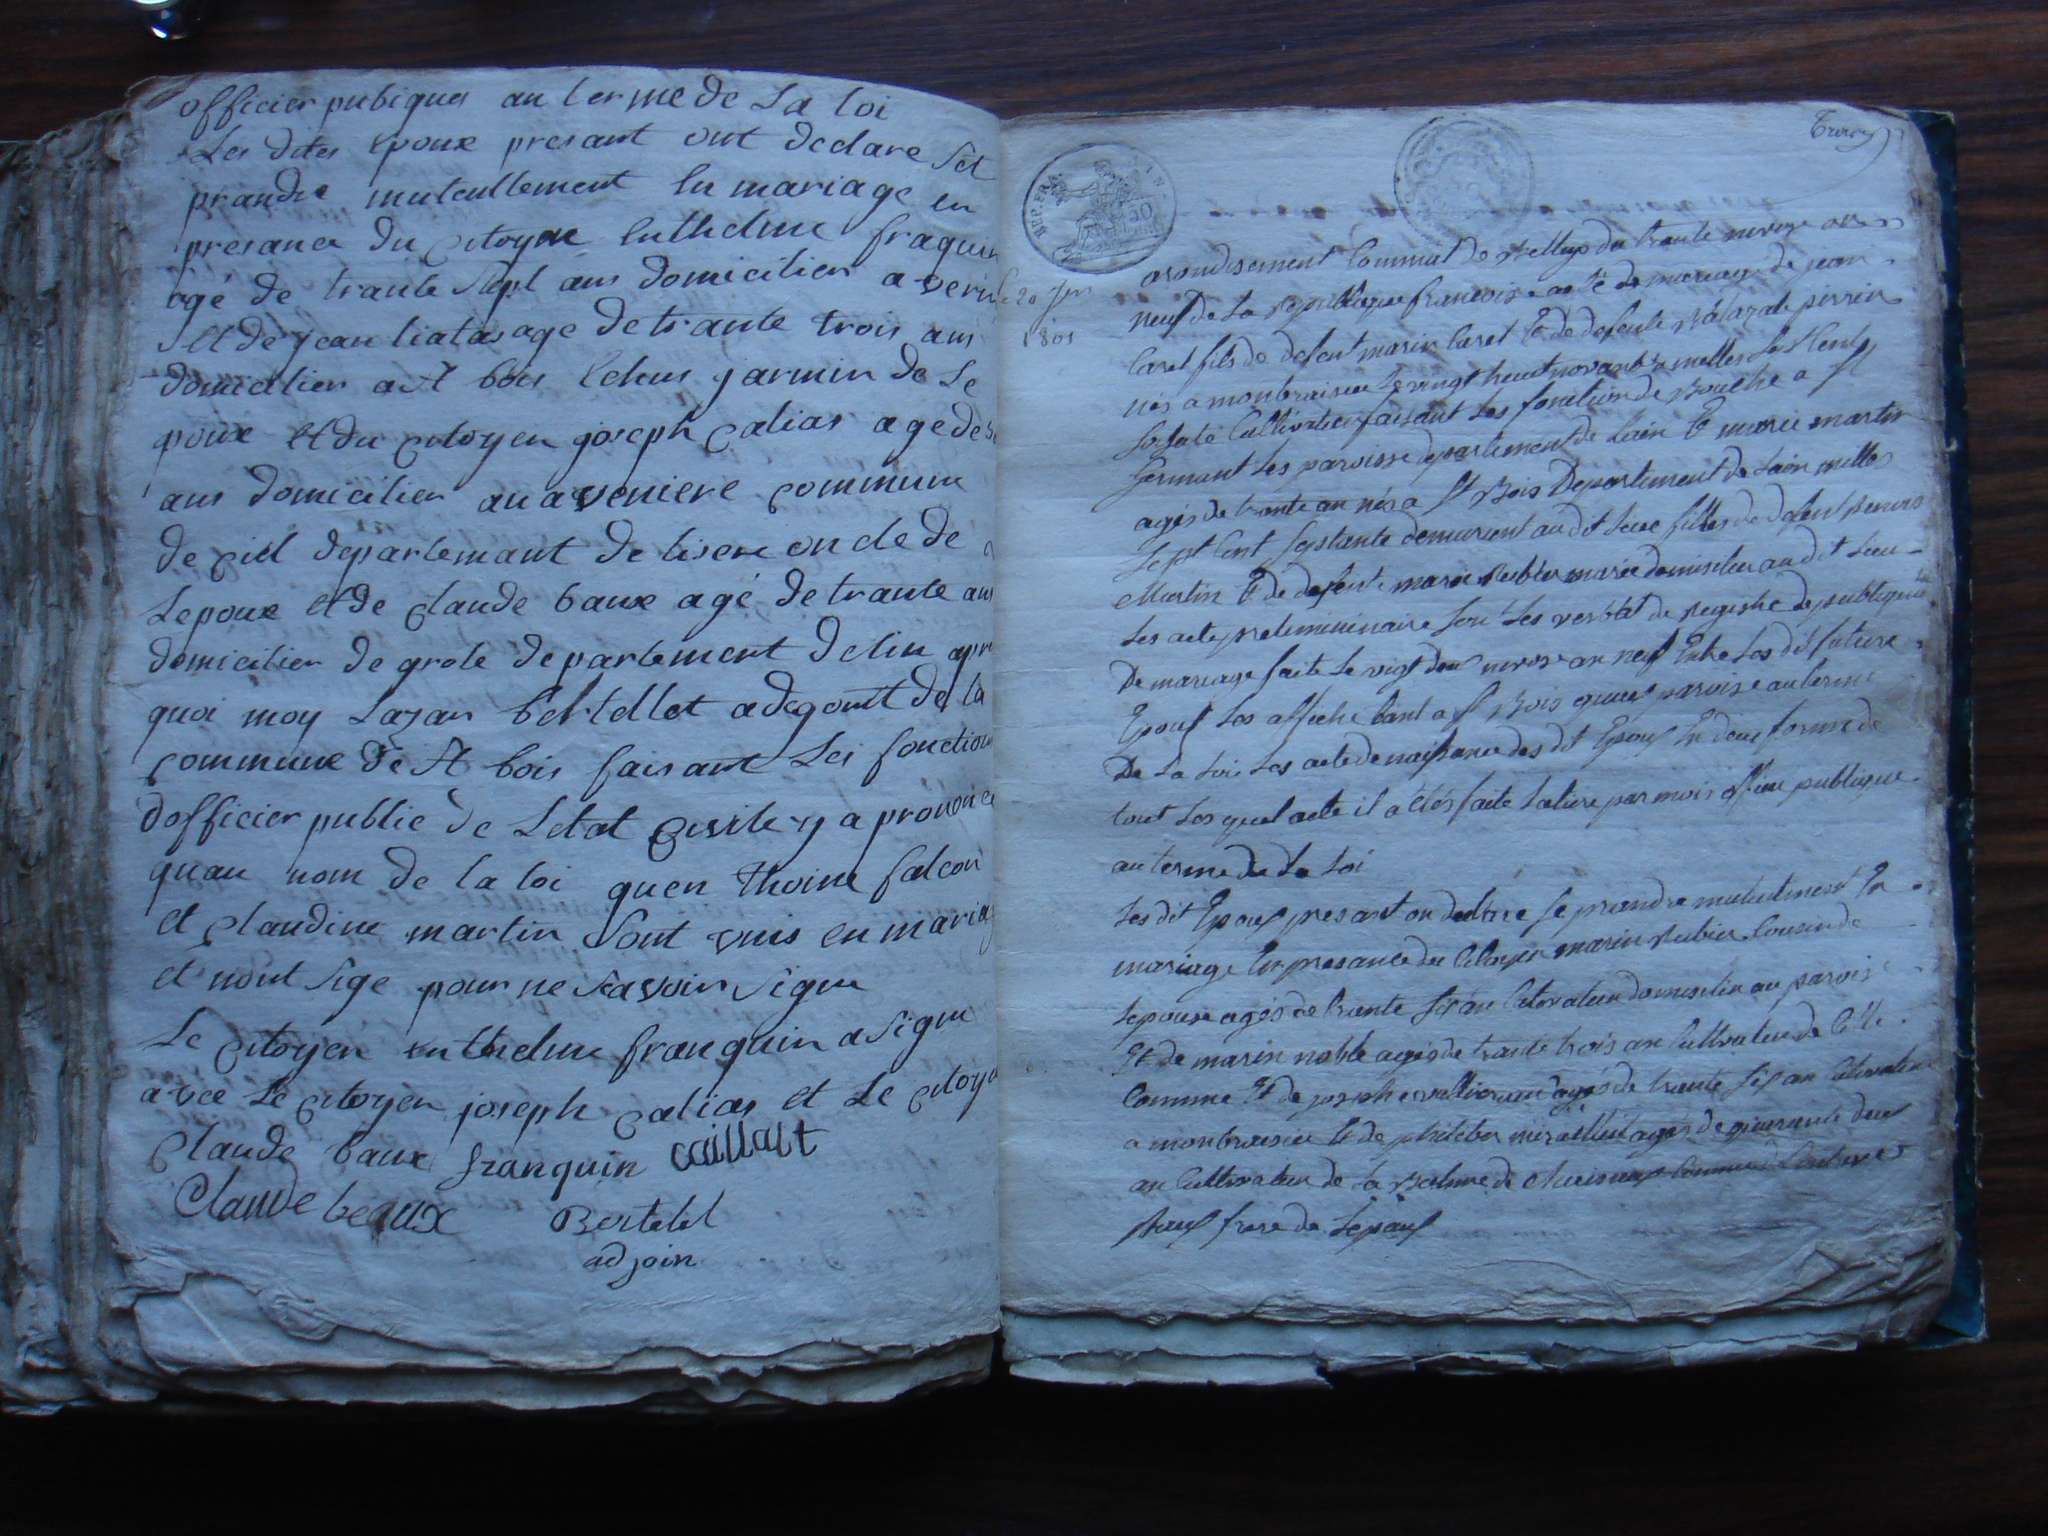 officier pubiques au terme de La loi
Les dites epoux presant ont declare Set
prandre mutuellement en mariage en
presance du Citoyne Enthelme fraquin
agé de trante Sept ans domicilier a
et de jean liatas age de trante trois ans
domicilier a St bois Cousin jarmin de Le
poux et du Citoyen joseph Calias age de
ans domicilier au aveniere Commune
de Ciel departemant de lisere oncle de
Lepoux et de Claude baux agé de trante ans
domicilier de grole departement delin apre
quoi moy Lazar bertellet adegoint de la
Commune de St bois faisant Les fonctions
dofficier public de Letat Civile y a prononce
quau nom de la loi quen thoine falcon
et Claudine martin Sont unis en mariag
et nont Sige pour ne Scavoir Signe
Le Citoyen enthelme franquin a Signe
avec Le Citoyen joseph Calias et Le Citoye
Claude baux franquin caillatt
Claude beaux Bertelet
adjoin
REP. FRA.
20 jer
1801
arondisement Communal de Belley du trante nivoge an
neuf de La Republique francoise acte de mariage de jean
Caret fils de defent marin Caret Et de defente perrin
nés a monbraisieu Le vingt heut novanbre milles Sest Cent
Soisate Cultivateur faisant Les fonction de a St
germant Les paroisse departement de Lain Et marie martin
agés de trante an nés a St Bois Departement de Lain milles
Sept Cent Seystante demeurent au dit Lieu filles de defent
Martin Et de defente marie Rubier mariés domicilier au dit Lieu
Les acte preliminaire Son Les verbal de Registre de publiquations
De mariage faite Le vigt deus nivose an neuf Entre Les dit future
Epous Les affiche tant a St Bois quaux paroise au terme
De La Loi Les acte de naissance des dit Epous En deue forme de
tout Les quel acte il a étés faite Lecture par mois offisie publique
au terme de La Loi
Les dit Epous presant on declare se prandre mutuelment En
mariage En presance du Citoyen marin Rubier Cousin de
Lepouse agés de trante Sis an Cultivateur domicilier au parois
Et de marin noble agés de trante trois an Cultivateur de
Comune Et de joseph agés de trante Sis an Cultivateur
a monbraisieu Et de philiber agés de quarante deus
an Cultivateur de La Balme de
Baus frere de Lepous